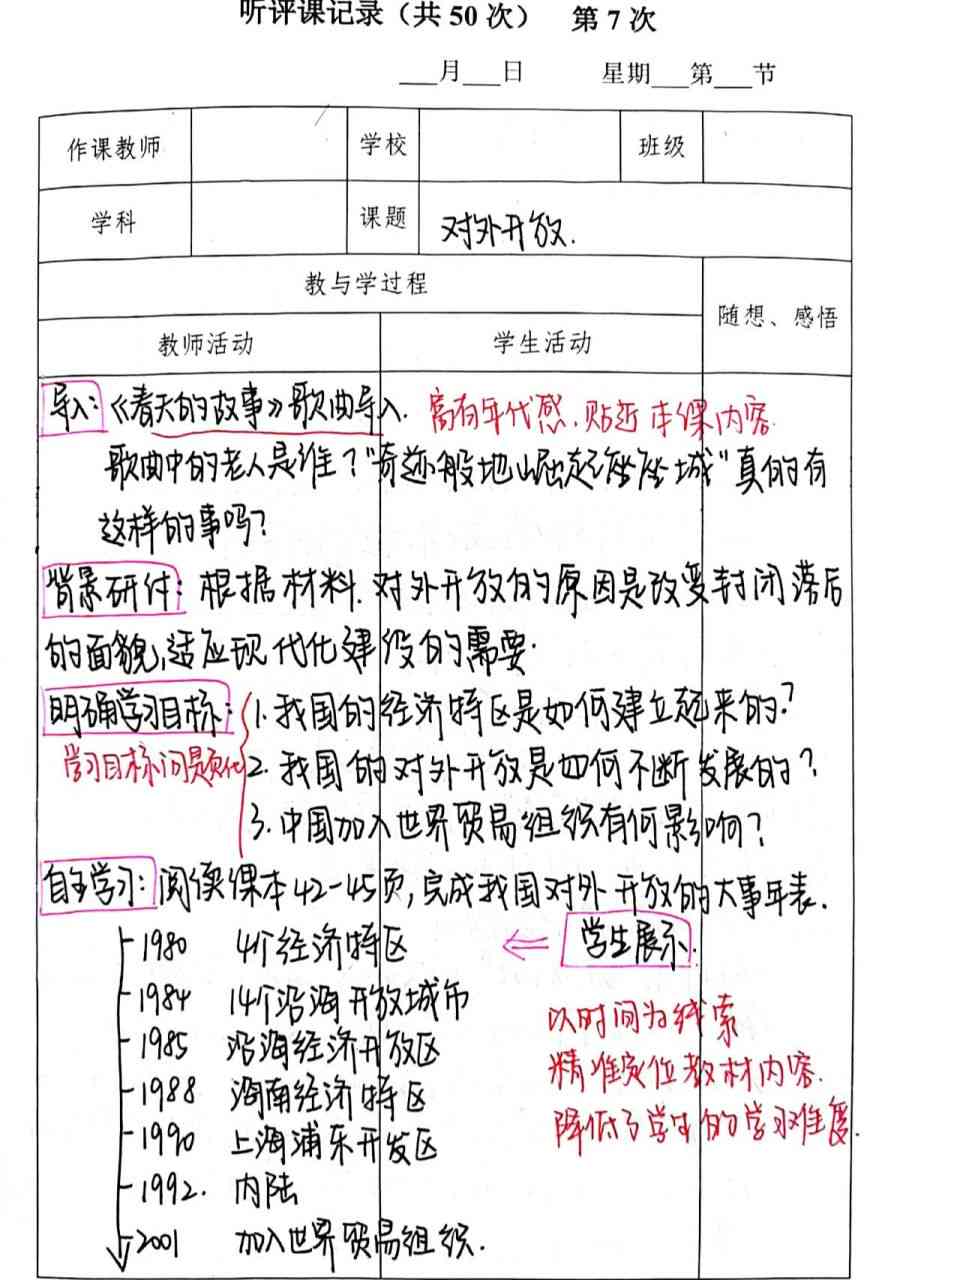 听评课记录（共50次） 第7次
___月___日 星期___第___节
作课教师 学校 班级
学科 课题 对外开放.
教与学过程
随想、感悟
教师活动 学生活动
导入:《春天的故事》歌曲导入. 富有年代感.贴近本课内容.
歌曲中的老人是谁?"奇迹般地崛起座座城"真的有
这样的事吗?
背景研讨: 根据材料.对外开放的原因是改变封闭落后
的面貌,适应现代化建设的需要.
明确学习目标: 1.我国的经济特区是如何建立起来的?
学习目标问题化 2.我国的对外开放是如何不断发展的?
3.中国加入世界贸易组织有何影响?
自主学习: 阅读课本42-45页,完成我国对外开放的大事年表.
1980 4个经济特区 ⇐ 学生展示.
1984 14个沿海开放城市
以时间为线索
1985 沿海经济开放区
精准定位教材内容.
1988 海南经济特区
降低了学生的学习难度.
1990 上海浦东开发区
1992. 内陆
2001 加入世界贸易组织.